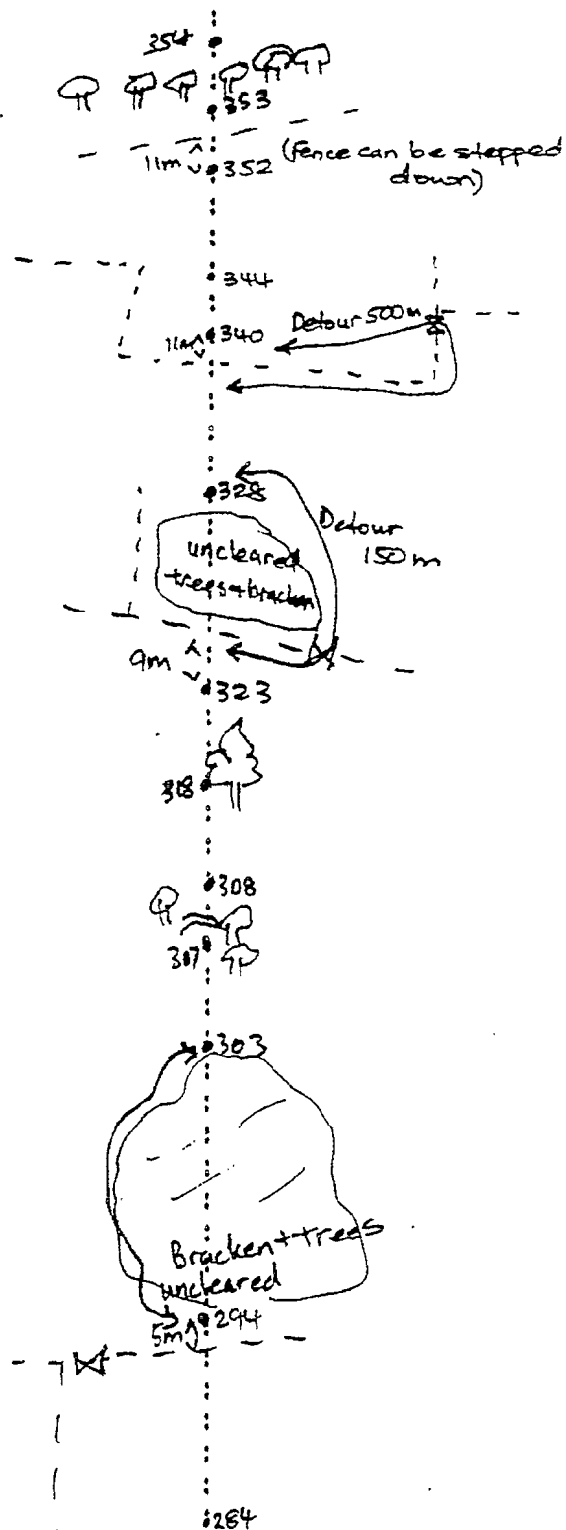 354
353
11m
352
(Fence can be stepped
down)
344
340
Detour 500m
11m
328
Detour
150m
uncleared
trees + bracken
9m
323
318
308
307
303
Bracken + trees
uncleared
294
5m
284